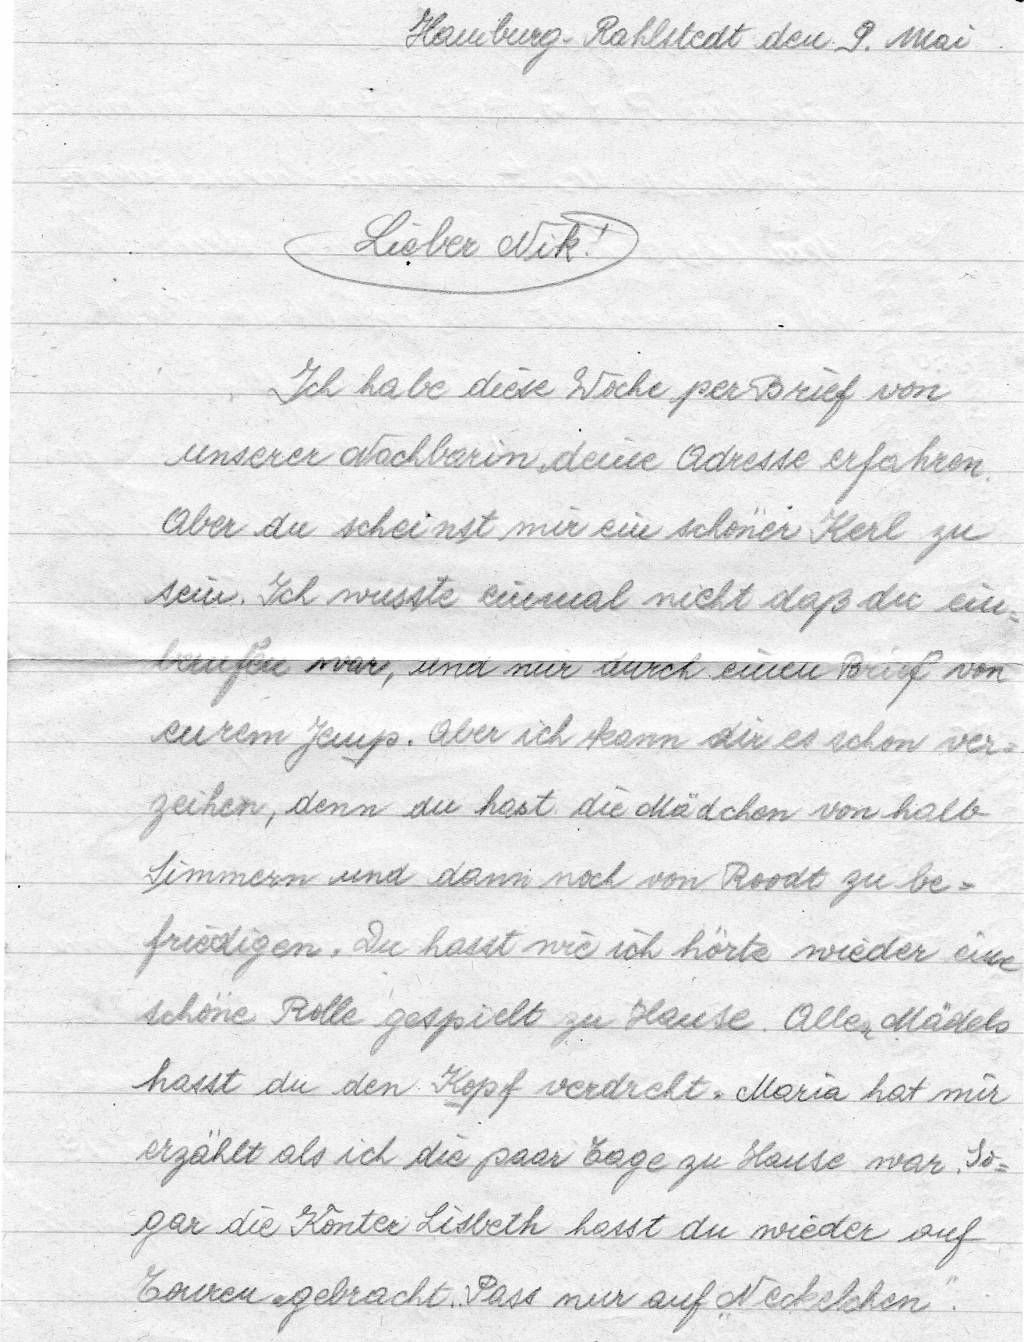 Hamburg-Rahlstedt den 9. Mai
Lieber Nik!
Ich habe diese Woche per Brief von
unserer Nachbarin deine Adresse erfahren.
Aber du scheinst mir ein schöner Kerl zu
sein. Ich wusste einmal nicht daß du ein-
berufen war, und nur durch einen Brief von
eurem Jemp. Aber ich kann dir es schon ver-
zeihen, denn du hast die Mädchen von halb
Simmern und dann noch von Roodt zu be-
friedigen. Du hasst wie ich hörte wieder eine
schöne Rolle gespielt zu Hause. Allen Mädels
hasst du den Kopf verdreht. Maria hat mir
erzählt als ich die paar Tage zu Hause war. So-
gar die Könter Lisbeth hasst du wieder auf
Touren gebracht. Pass nur auf "Neckelchen".